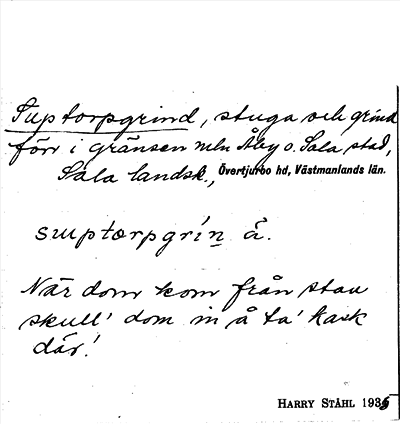 Suptorpgrind, stuga och grind
förr i gränsen mln Åby o. Sala stad,
Sala landsk., Övertjurbo hd, Västmanlands län.
suuptorpgrín̲ å.
När dom kom från stau
skull' dom in å ta' kask
där!
HARRY STÅHL 1935